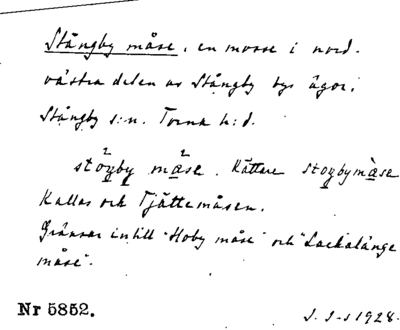 Stångby måse, en mosse i nord-
västra delen av Stångby bys ägor,
Stångby s:n. Torna h:d.
stoŋby måse. Rättare stoŋbymåse
Kallas och Tjättemåsen.
Gränsar intill "Hoby måse" och "Lackalänge
måse".
Nr 5852.
1928.